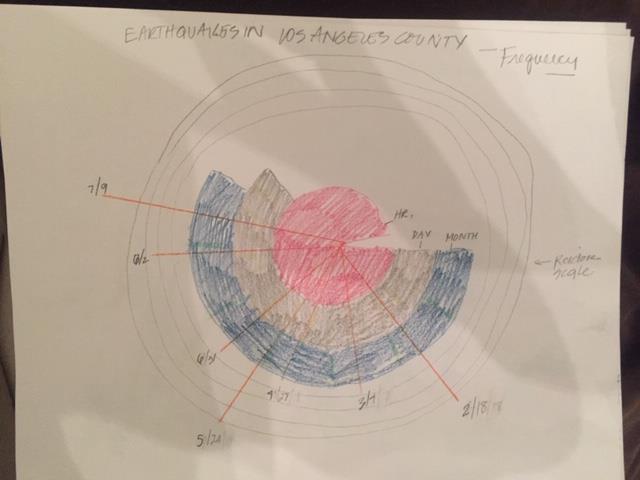 EARTHQUAKES IN LOS ANGELES COUNTY
— Frequency
7/9
HR.
DAY
MONTH
6/2
← Richter
Scale
4/27
3/1
2/18/18
5/21